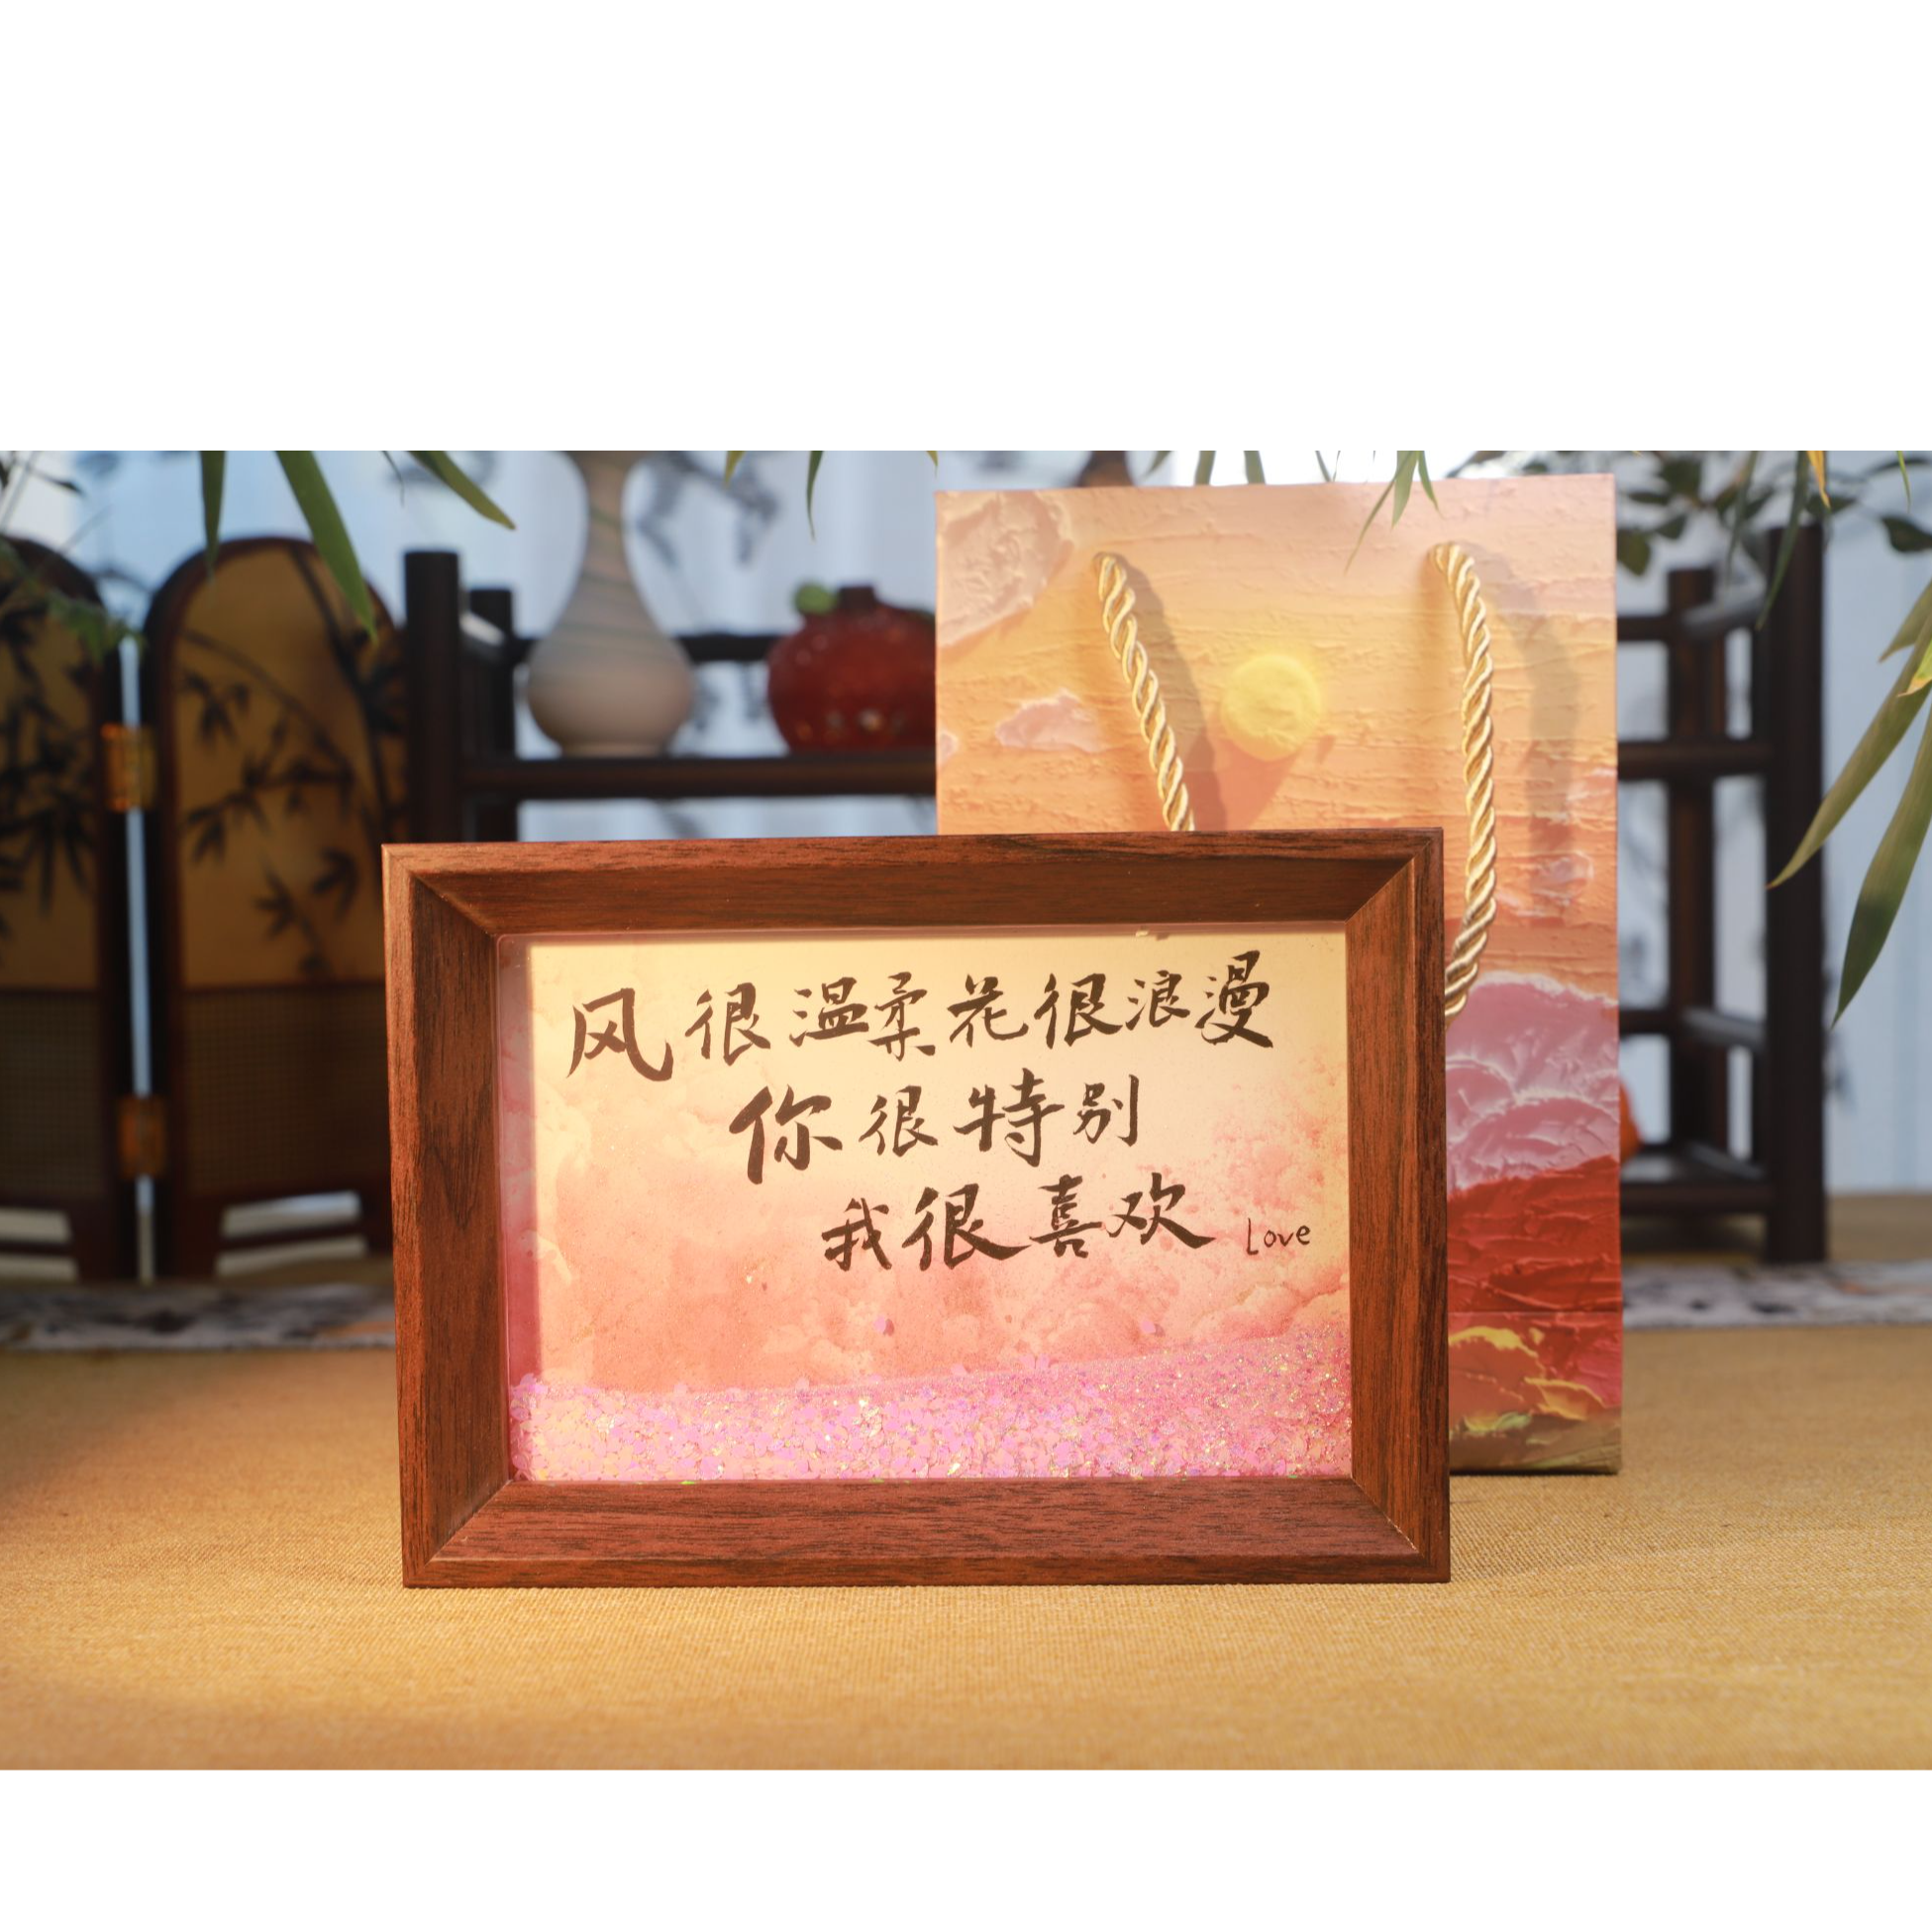 风很温柔花很浪漫
你很特别
我很喜欢 Love